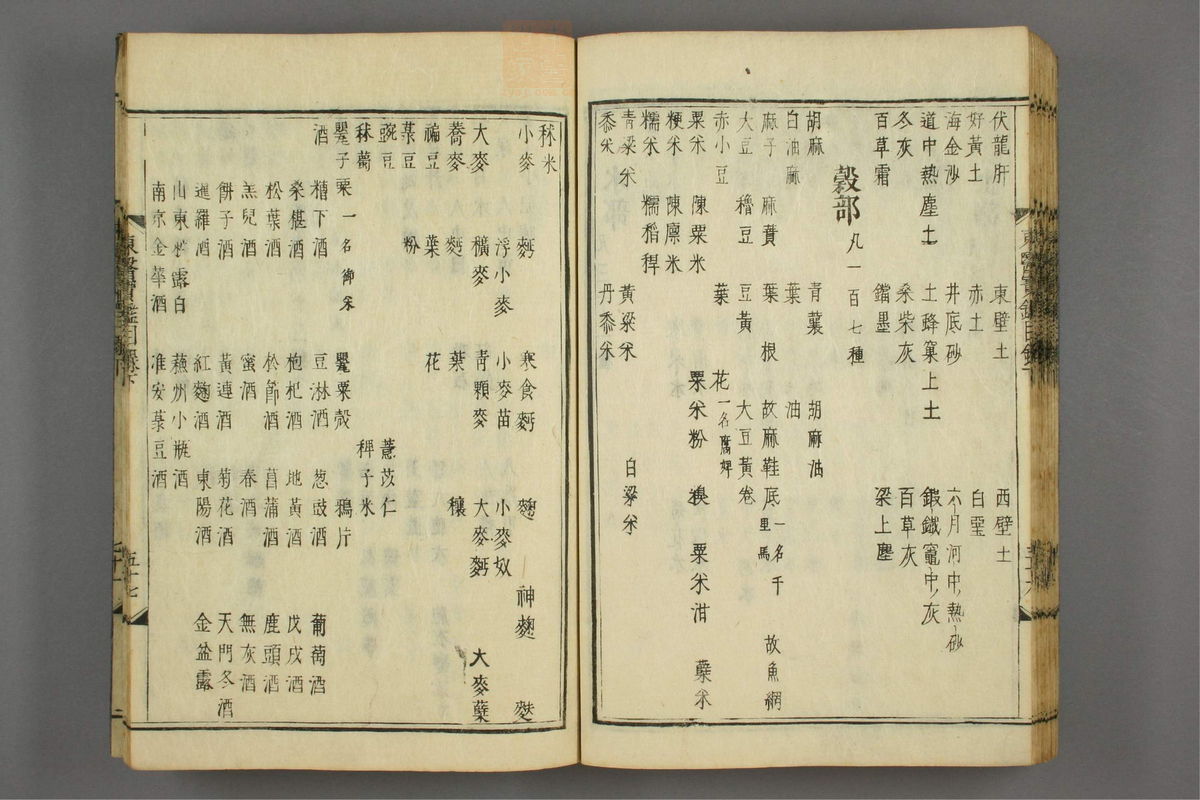 伏龍肝 東壁土 西壁土
好黃土 赤土 白堊
海金沙 井底砂 六月河中熱砂
道中熱塵土 土蜂窠上土 鍛鐵竈中灰
冬灰 桑柴灰 百草灰
百草霜 鐺墨 梁上塵
穀部 凡一百七種
胡麻 青蘘 胡麻油
白油麻 葉 油
麻子 麻蕡 葉 根 故麻鞋底一名千里馬 故魚網
大豆 穭豆 豆黃 大豆黃卷
赤小豆 葉 花一名腐婢
粟米 陳粟米 粟米粉 粟米泔 糵米
粳米 陳廩米
糯米 糯稻稈
青粱米 黃粱米 白粱米
黍米 丹黍米
東醫寶鑑目錄下
秫米
小麥 麪 寒食麪 麴 神麴 麩
浮小麥 小麥苗 小麥奴
大麥 穬麥 青顆麥 大麥麪 大麥糵
蕎麥 麪 葉 穰
藊豆 葉 花
菉豆 粉
豌豆 薏苡仁
秫薥 稗子米
罌子粟一名御米 罌粟殼 鴉片
酒 糟下酒 豆淋酒 葱豉酒 葡萄酒
桑椹酒 枸杞酒 地黃酒 戊戌酒
松葉酒 松節酒 菖蒲酒 鹿頭酒
羔兒酒 蜜酒 春酒 無灰酒
餠子酒 黃連酒 菊花酒 天門冬酒
暹羅酒 紅麴酒 東陽酒 金盆露
山東秋露白 蘇州小瓶酒
南京金華酒 淮安菉豆酒
東醫寶鑑目錄下 五十七